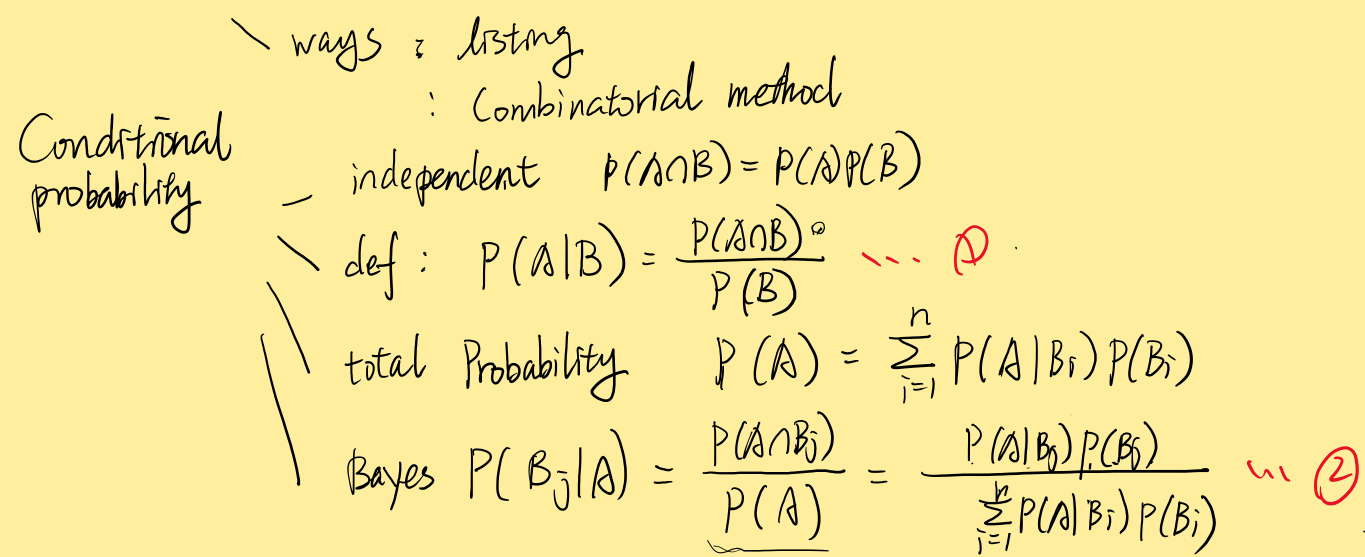 ways : listing
: Combinatorial method
Conditional
probability
independent P(A∩B) = P(A)P(B)
def : P(A|B) = P(A∩B) / P(B) ... ①
total Probability P(A) = ∑_{i=1}^{n} P(A|Bi) P(Bi)
Bayes P(Bj|A) = P(A∩Bj) / P(A) = P(A|Bj) P(Bj) / ∑_{i=1}^{n} P(A|Bi) P(Bi) ... ②